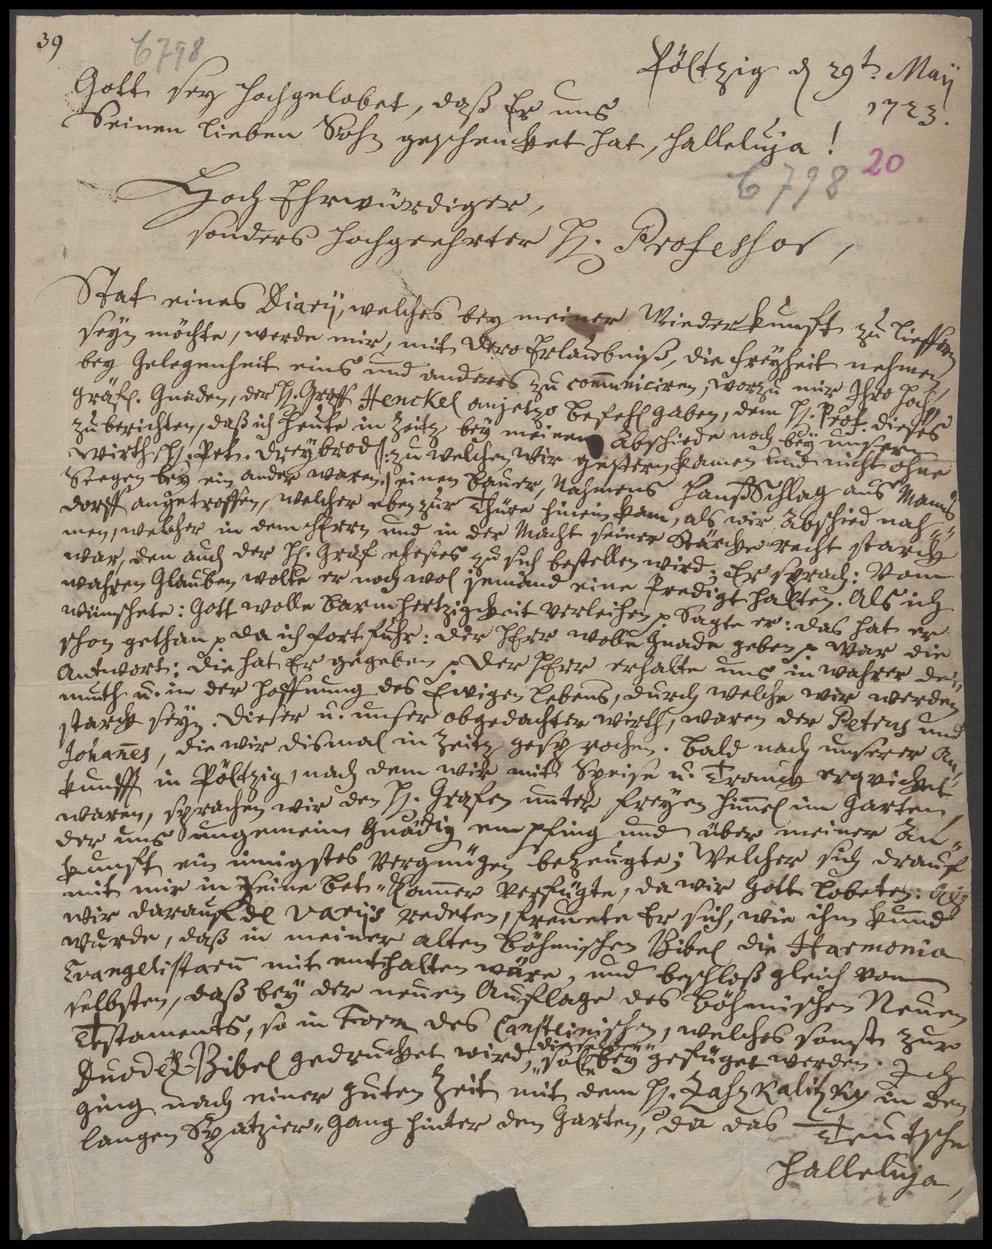 39
6798
Pöltzig d 29t. Maij
1723.
Gott sey hochgelobet, daß Er uns
Seinen lieben Sohn geschencket hat, Halleluja!
20
6798
Hoch Ehrwürdiger,
sonders hochgeehrter H. Professor,
Stat eines Diarij, welches bey meiner Wiederkunfft zu lieffern
seyn möchte, werde mir, mit Dero Erlaubniß, die Freyheit nehmen,
bey Gelegenheit eins und anders zu communiciren, worzu mir Ihro Hoch-
gräfl. Gnaden, der H. Graff Henckel anjetzo Befehl gaben, dem H. Prof. dieses
zu berichten, daß ich heute in Zeitz, bey meinem Abschiede noch bey unserm
Wirth, H. Petr. Dreybrod (: zu welchen wir gestern kamen und nicht ohne
Seegen bey ein ander waren:) einen Bauer, Nahmens Hanß Schlag aus Manns-
dorff angetroffen, welcher eben zur Thüre hinein kam, als wir Abschied nah-
men, welcher in dem Herrn und in der Macht seiner Stärcke recht starck
war, den auch der H. Graf ehestes zu sich bestellen wird; Er sprach: Vom
wahren Glauben wolte er noch wol jemand eine Predigt halten. Als ich
wünschete: Gott wolle Barmhertzigkeit verleihen, sagte er: das hat er
schon gethan, da ich fortfuhr: der Herr wolle Gnade geben, war die
Antwort: die hat Er gegeben, Der Herr erhalte uns in wahrer De-
muth u. in der Hoffnung des Ewigen Lebens, durch welche wir werden
starck seyn. Dieser u. unser obgedachter Wirth, waren der Petrus und
Johannes, die wir dismal in Zeitz gesprochen. Bald nach unserer An-
kunfft in Pöltzig, nach dem wir mit Speise u. Tranck erqvicket
waren, sprachen wir den H. Grafen unter freyen Himmel im Garten,
der uns ungemein gnädig empfing und über meiner An-
kunfft ein innigstes Vergnügen bezeugte; Welcher sich drauf
mit mir in seine Bet-Kammer verfügte, da wir Gott lobeten: Als
wir darauf de variis redeten, freuete Er sich, wie ihm kund
wurde, daß in meiner alten Böhmischen Bibel die Harmonia
Evangelistarum mit enthalten wäre, und beschloß gleich von
selbsten, daß bey der neuen Auflage des Böhmischen Neuen
Testaments, so in Form des Cansteinischen, welches sonst zur
Duodez-Bibel gedrucket wird, dieselbe solle bey gefüget werden. Ich
ging nach einer guten Zeit mit dem H. in den
langen Spatzier-Gang hinter den Garten, da das Teutsche
Halleluja,